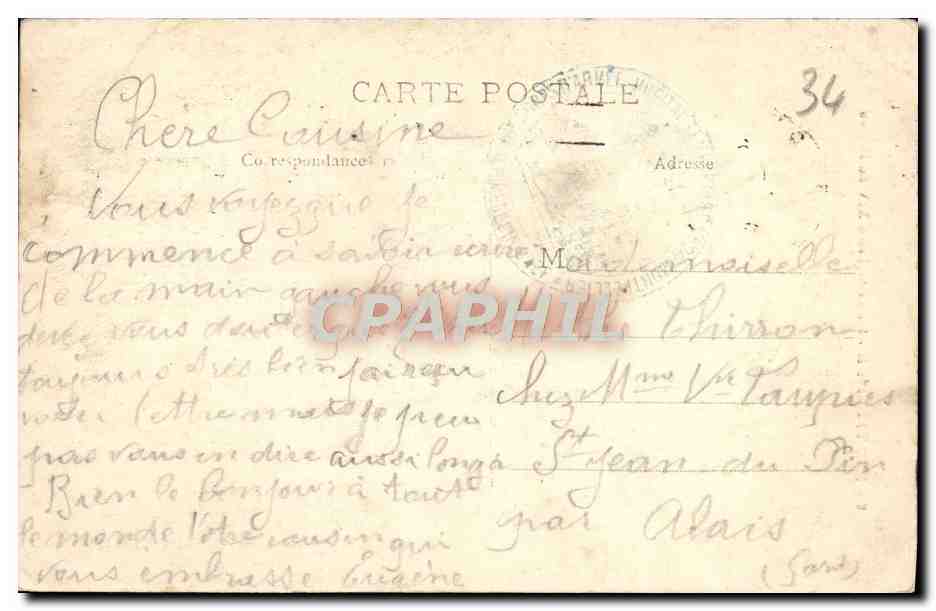 CARTE POSTALE
34
Chère Cousine
Correspondance
Adresse
Vous voyezque je
commence à savoir ecrire
de la main gauche vus
devez vous
toujours très bien
votre lettre mais je peu
pas vous en dire aussi long a
Bien le bonjour à tout
le monde Votre cousin qui
vous embrasse Eugène
Mademoiselle
Thirron
chez Mme Vve
St Jean du Pin
par Alais
(Gard)
CPAPHIL